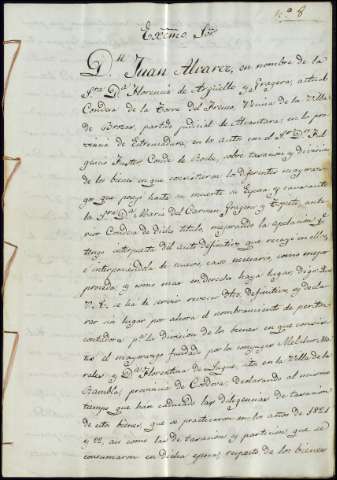 nº 8
Exmo Sor
Dn Juan Alvarez, en nombre de la
Sra Da Florencia de Argüello y Grajera, actual
Condesa de la Torre del Fresno, Vecina de la Villa
de Brozas, partido judicial de Alcantara en la pro
de Estremadura, en los autos con el Sor Dn
Conde de sobre tasacion y division
de los bienes en que consistieron los diferentes mayoraz
gos que poseyó hasta su muerte su Esposa, y causante
la Sra Da Maria del Carmen Grajera y
Condesa de dicho titulo, mejorando la apelacion q
tengo interpuesta del auto definitivo que recayó en ellos,
é interponiendola de nuevo, caso necesario, como mejor
proceda, y como mas en derecho haya lugar, digo: Que
V.E. se ha de servir revocar dho definitivo, y declar
rar sin lugar por ahora el nombramiento de partitor
contadores pa la division de los bienes en que consis
tió el mayorazgo fundado por los conyuges Melchor
y Da Florentina de Luque, sito en la Villa de la
Rambla, provincia de Cordova, declarando al mismo
tiempo que han caducado las diligencias de tasacion
de estos bienes, que se practicaron en los años de 1821
y 22, asi como las de tasacion y particion que se
consumaron en dicha epoca, respecto de los bienes